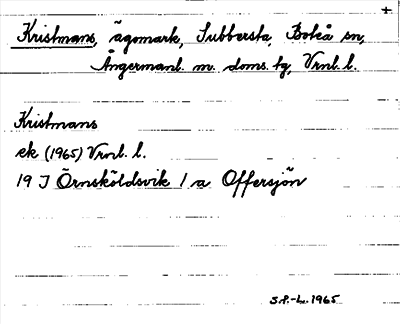 +
Kristmans, ägomark, Subbersta, Boteå sn,
Ångermanl. m. doms. tg, Vrnl. l.
Kristmans
ek (1965) Vrnl. l.
19 J Örnsköldsvik 1 a Offersjön
S.P.-L. 1965